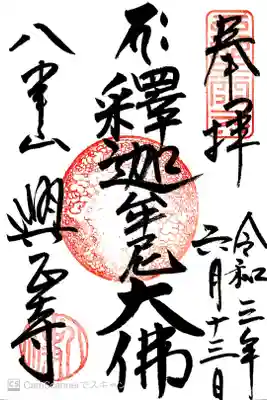 奉拝
令和三年
六月十三日
釋迦牟尼大佛
八事山
興正寺
CS CamScannerでスキャン